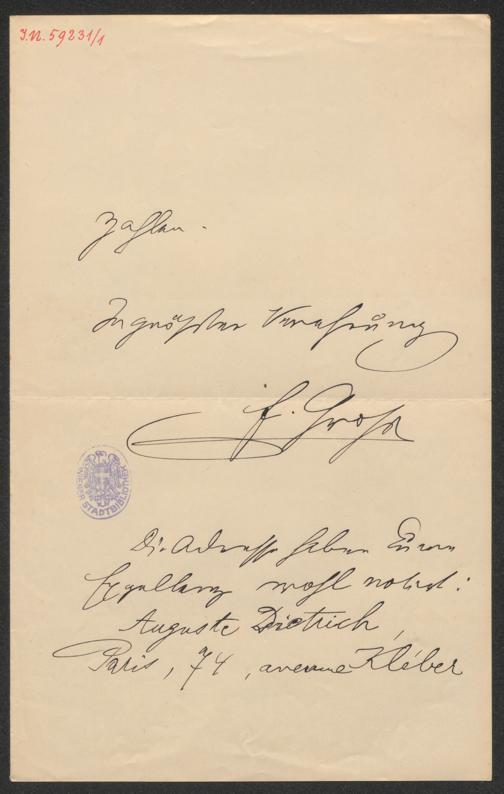 J.N. 59231/1
zahlen.
In größter Verehrung
F. Groß
WIENER STADTBIBLIOTHEK
Die Adresse haben Eure
Exzellenz wohl notirt:
Auguste Dietrich,
Paris, 74, avenue Kléber